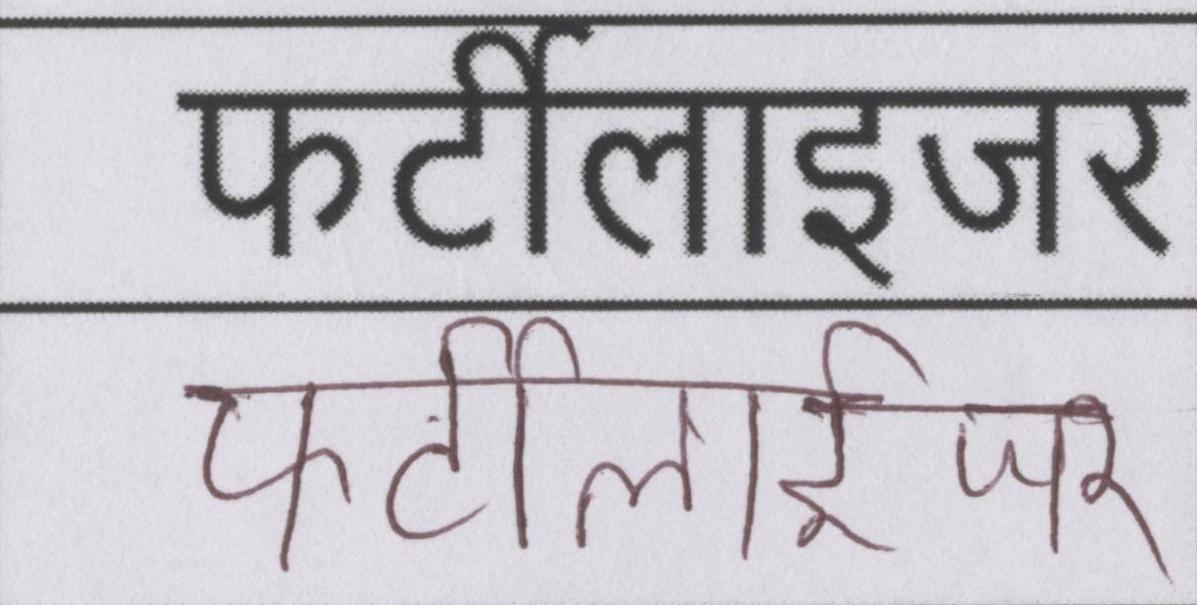 फर्टीलाइजर
फर्टीलाईजर